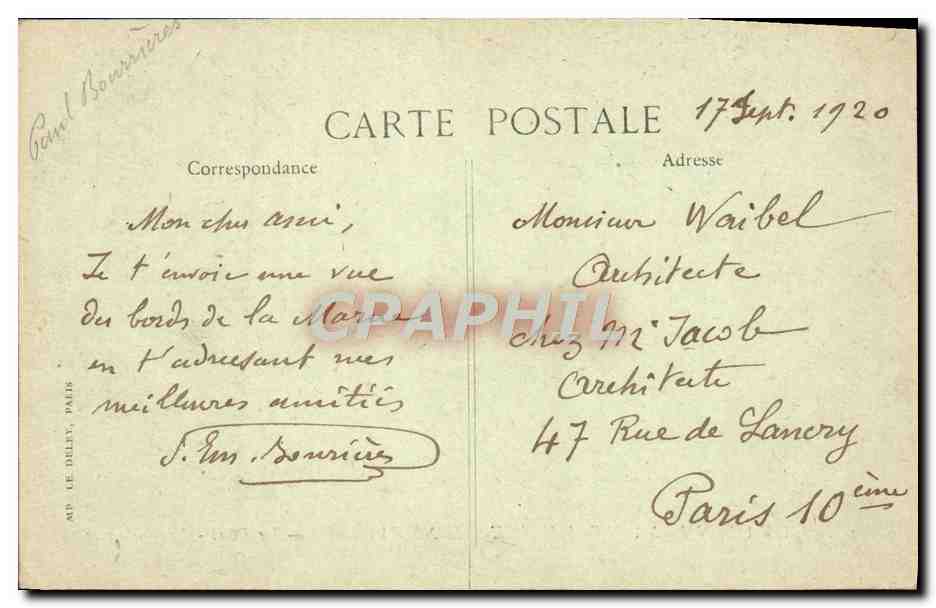 Paul Bourrières
CARTE POSTALE
17 Sept. 1920
Correspondance
Mon cher ami,
Je t'envoie une vue
des bords de la Marne
en t'adressant mes
meilleures amitiés
Em. Bourrières
Adresse
Monsieur Waibel
Architecte
chez Mr Jacob
Architecte
47 Rue de Lancry
Paris 10ème
IMP. LE DELEY, PARIS
CPAPHIL